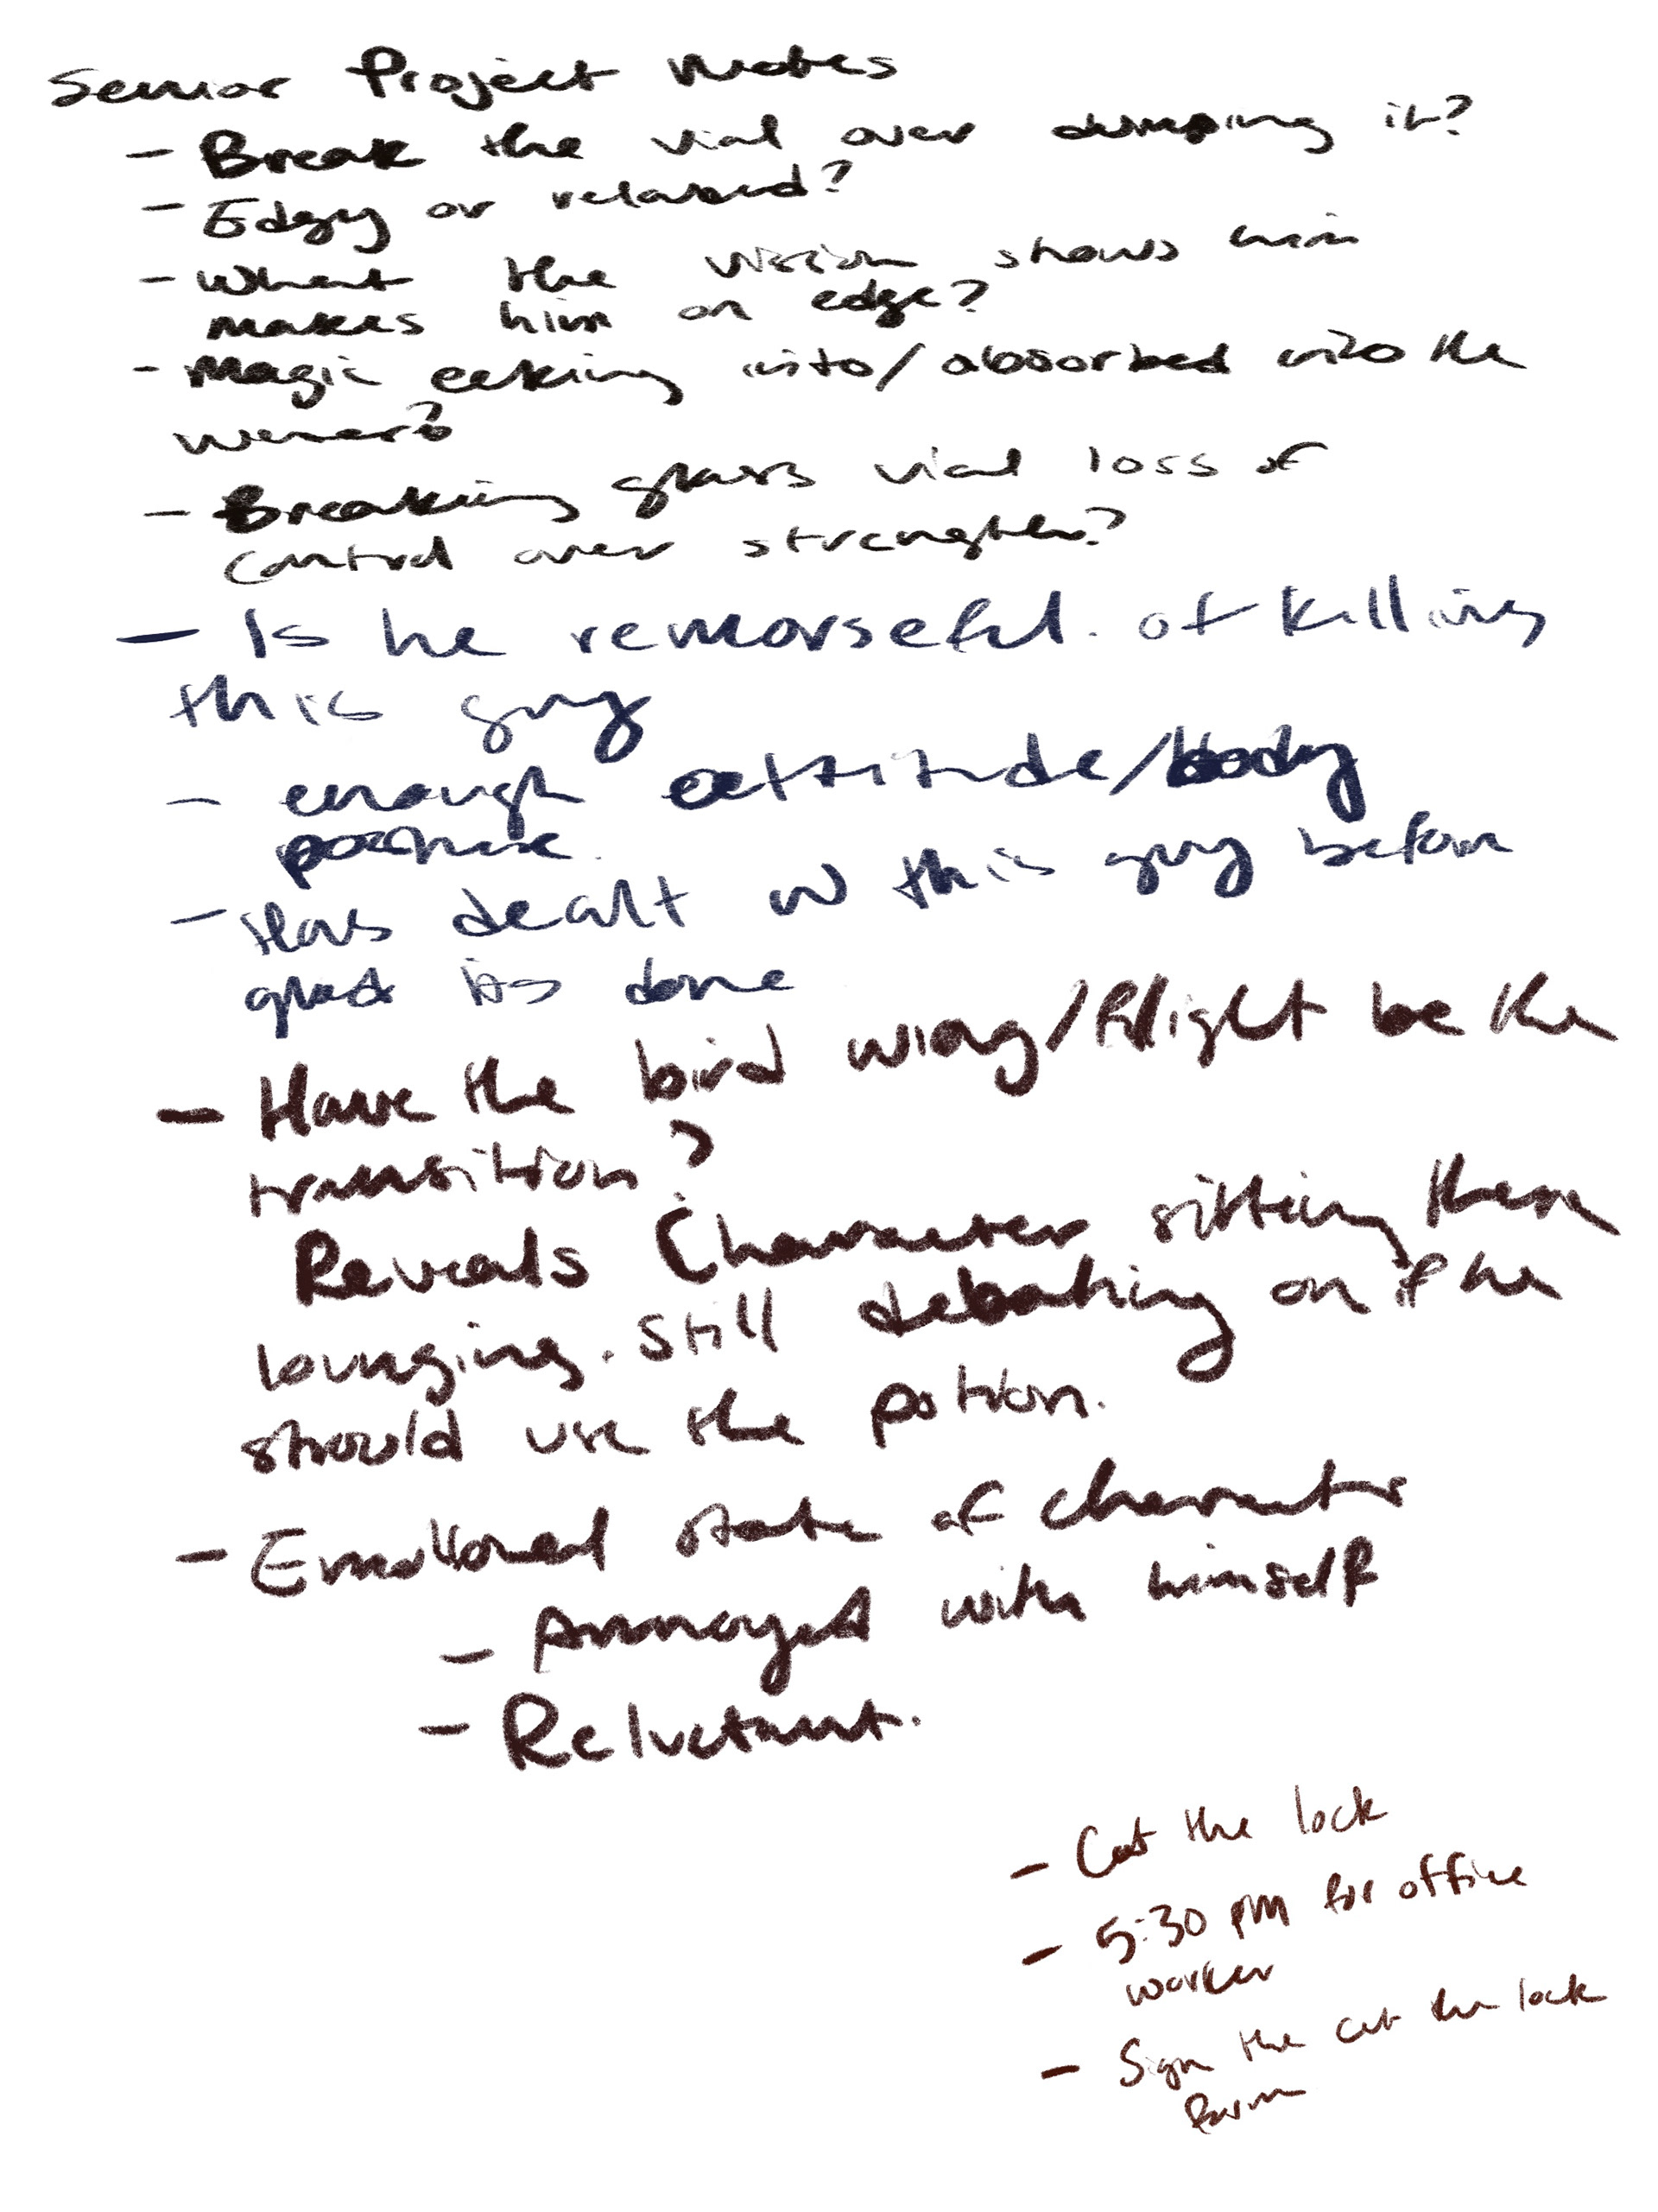 Senior Project Notes
- Break the vial over dumping it?
- Edgy or relaxed?
- What the vision shows him
makes him on edge?
- Magic eeking into/absorbed into the
wearer?
- Breaking glass vial loss of
control over strength?
- Is he remorseful. of killing
this guy
- enough attitude/body
posture.
- Has dealt w this guy before
glad its done
- Have the bird wing/flight be the
transition?
Reveals Character sitting there
lounging. Still debating on if he
should use the potion.
- Emotional state of character
- Annoyed with himself
- Reluctant.
- Cut the lock
- 5:30 pm for office
worker
- Sign the cut the lock
form